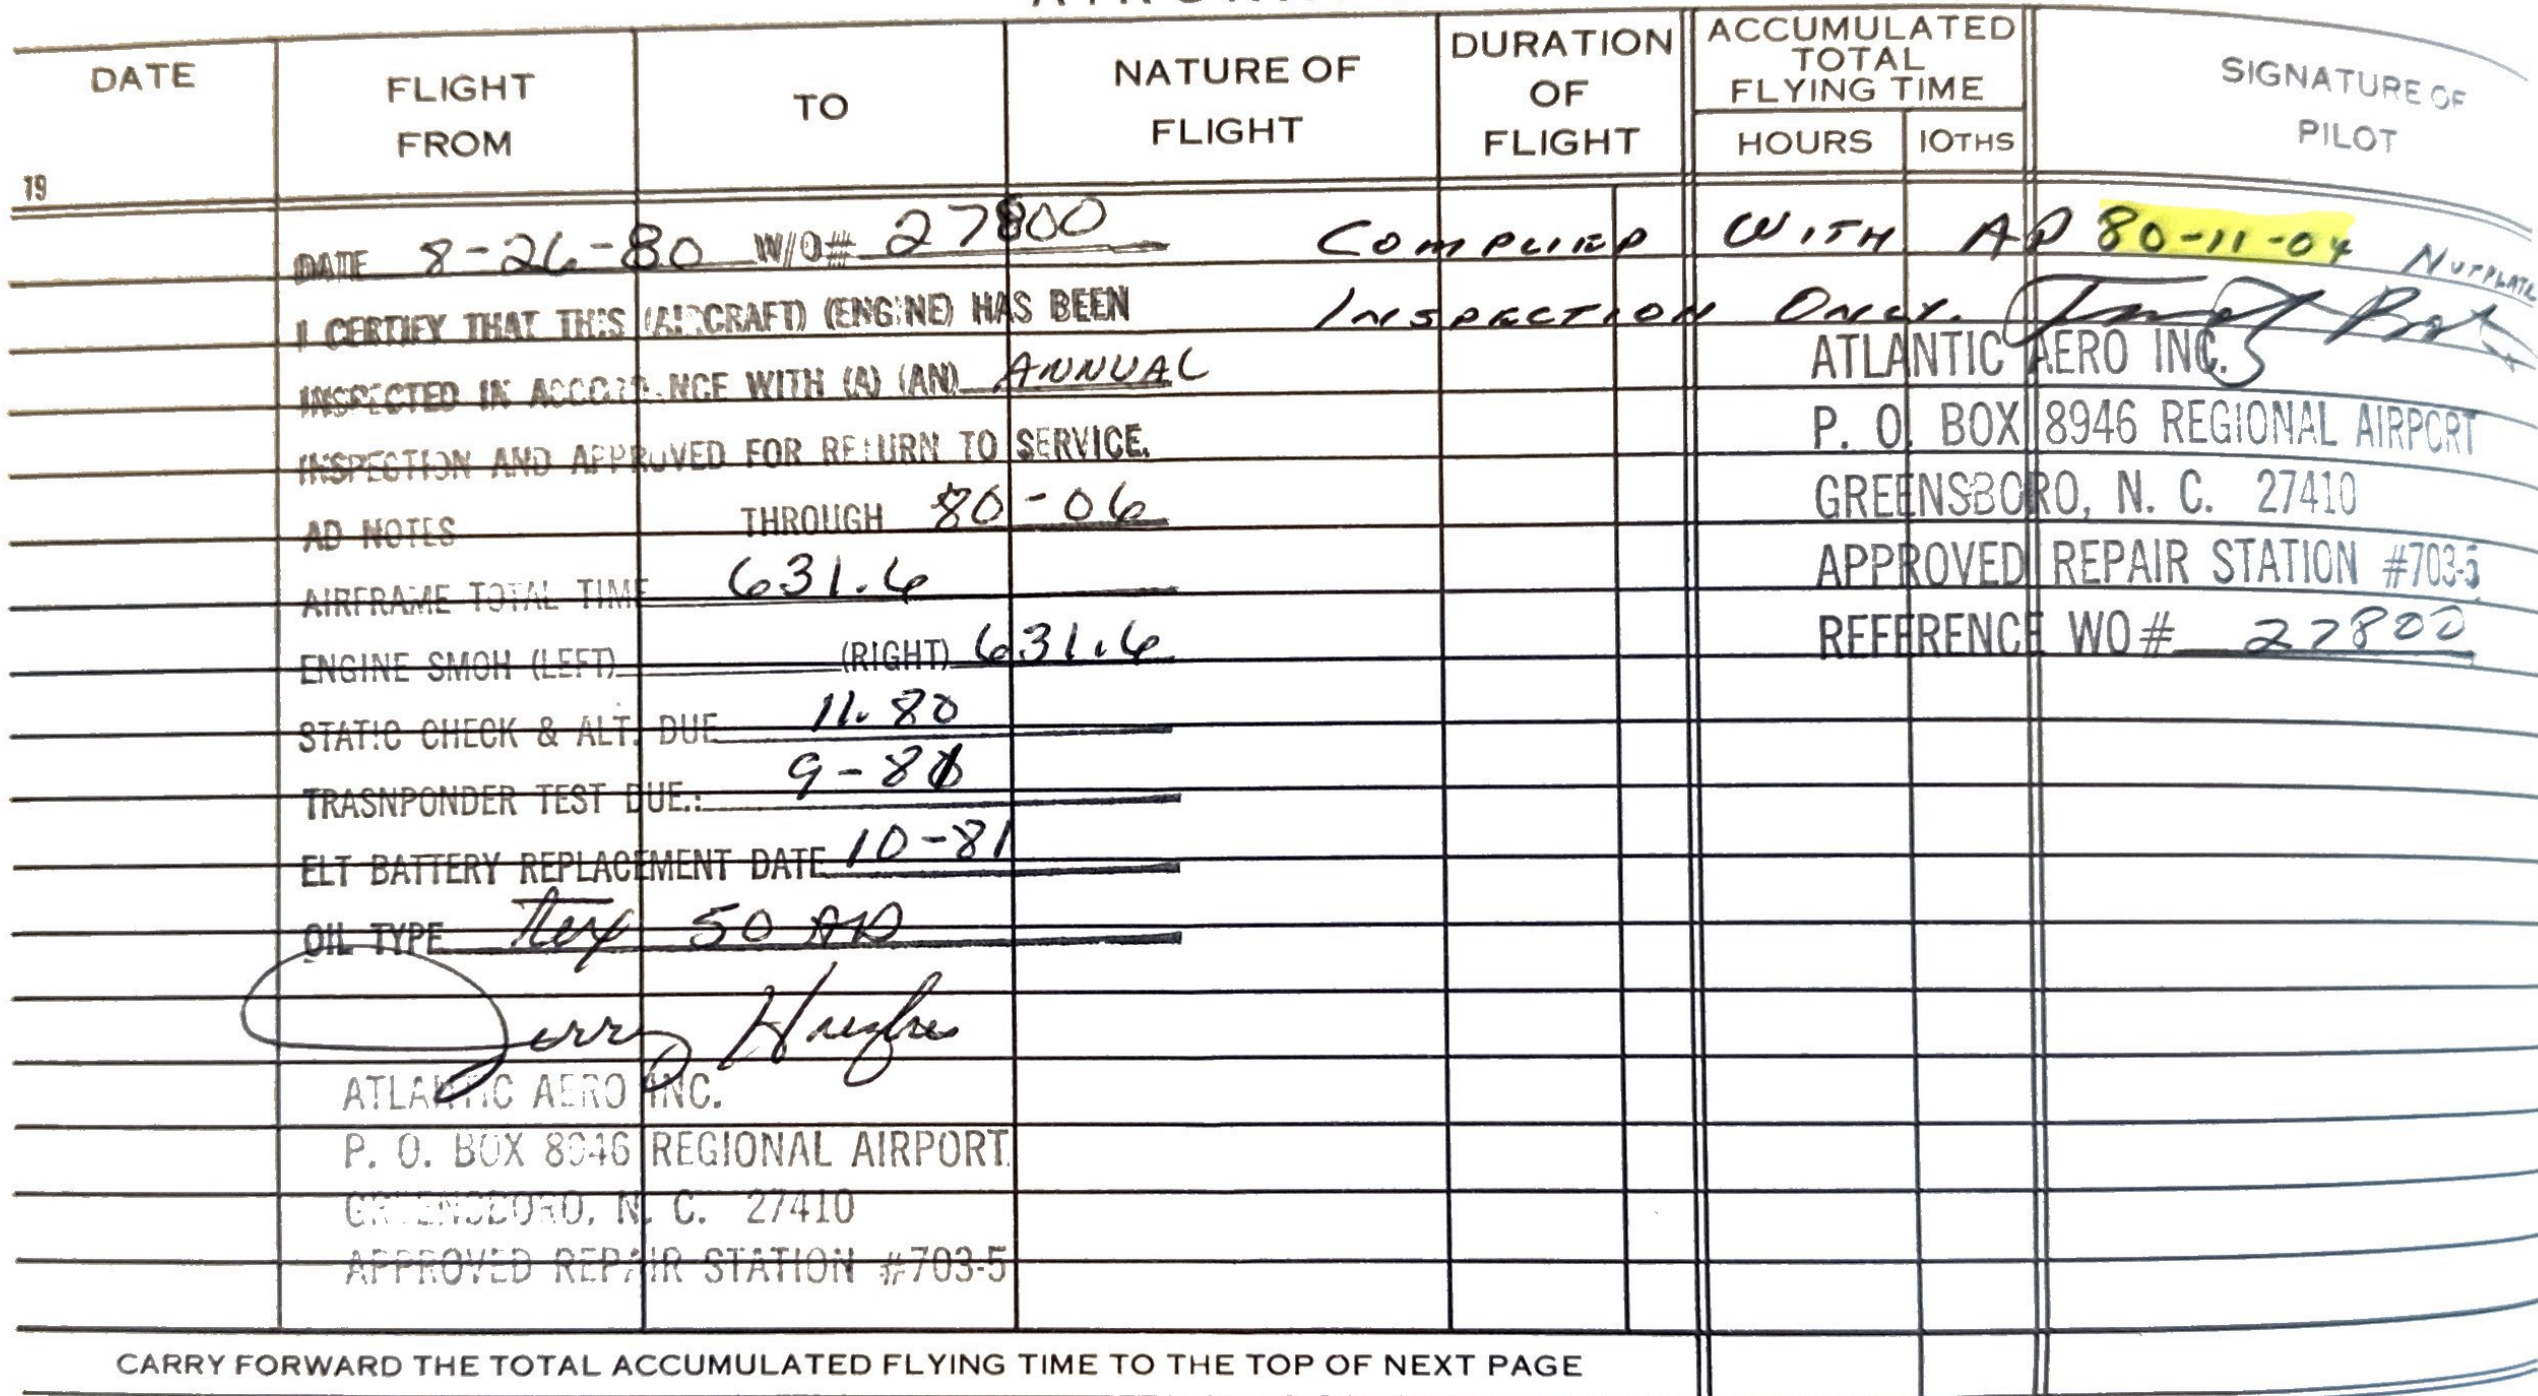 DATE
FLIGHT FROM
TO
NATURE OF FLIGHT
DURATION OF FLIGHT
ACCUMULATED TOTAL FLYING TIME
HOURS
10THS
SIGNATURE OF PILOT
19
DATE 8-26-80 W/O# 27800
I CERTIFY THAT THIS (AIRCRAFT) (ENGINE) HAS BEEN
INSPECTED IN ACCORDANCE WITH (A) (AN) ANNUAL
INSPECTION AND APPROVED FOR RETURN TO SERVICE.
AD NOTES THROUGH 80-06
AIRFRAME TOTAL TIME 631.6
ENGINE SMOH (LEFT) (RIGHT) 631.6
STATIC CHECK & ALT. DUE 11.80
TRASNPONDER TEST DUE.: 9-81
ELT BATTERY REPLACEMENT DATE 10-81
OIL TYPE Tex 50 AD
Jerry Hughes
ATLANTIC AERO INC.
P. O. BOX 8946 REGIONAL AIRPORT
GREENSBORO, N. C. 27410
APPROVED REPAIR STATION #703-5
COMPLIED WITH AD 80-11-04 NUTPLATE
INSPECTION ONLY.
ATLANTIC AERO INC.
P. O. BOX 8946 REGIONAL AIRPORT
GREENSBORO, N. C. 27410
APPROVED REPAIR STATION #703-5
REFERENCE WO# 27800
CARRY FORWARD THE TOTAL ACCUMULATED FLYING TIME TO THE TOP OF NEXT PAGE